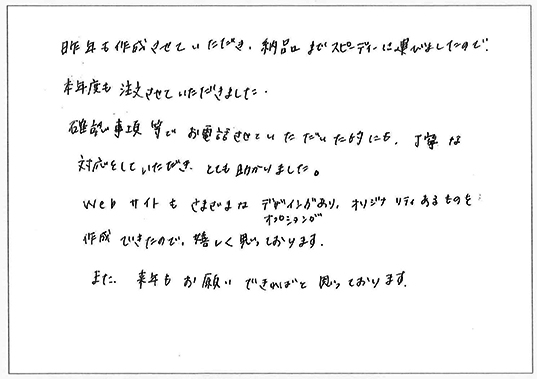 昨年も作成させていただき、納品までスピーディーに運びましたので、
本年度も注文させていただきました。
確認事項等でお電話させていただいた時にも、丁寧な
対応をしていただき、とても助かりました。
Webサイトもさまざまなデザインがあり、オリジナリティあるものを
オプションが
作成できたので、嬉しく思っております。
また、来年もお願いできればと思っております。